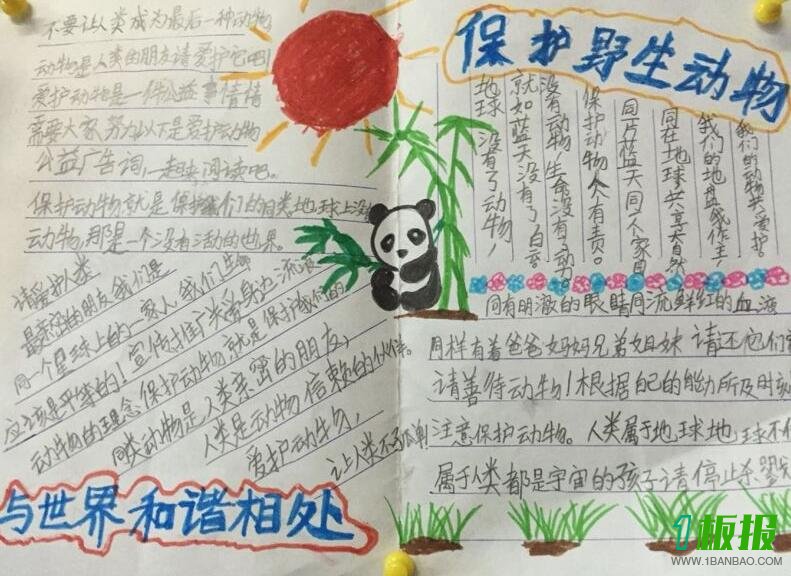 不要让人类成为最后一种动物
动物是人类的朋友请爱护它吧!
爱护动物是一件公益事情
需要大家努力以下是爱护动物
公益广告词,一起来阅读吧。
保护动物就是保护我们的同类地球上没有
动物,那是一个没有活动的世界。
请爱护人类
最亲密的朋友我们是
同一个星球上的一家人,我们生命
应该是平等的!宣传推广关爱身边流浪
动物的理念保护动物就是保护我们的
同类动物是人类亲密的朋友,
人类是动物信赖的伙伴。
爱护动物,
让人类不再孤单!
与世界和谐相处
保护野生动物
我们的动物共爱护。
我们的地盘我作主
同在地球共享自然
同一片蓝天同一个家园
保护动物人人有责。
没有动物,生命没有了动。
就如蓝天没有了白云。
地球没有了动物,
同有明澈的眼睛同流鲜红的血液
同样有着爸爸妈妈兄弟姐妹 请不
请善待动物!根据自己的能力所及时刻
注意保护动物。人类属于地球地球不
属于人类都是宇宙的孩子请停止杀
1板报
WWW.1BANBAO.COM